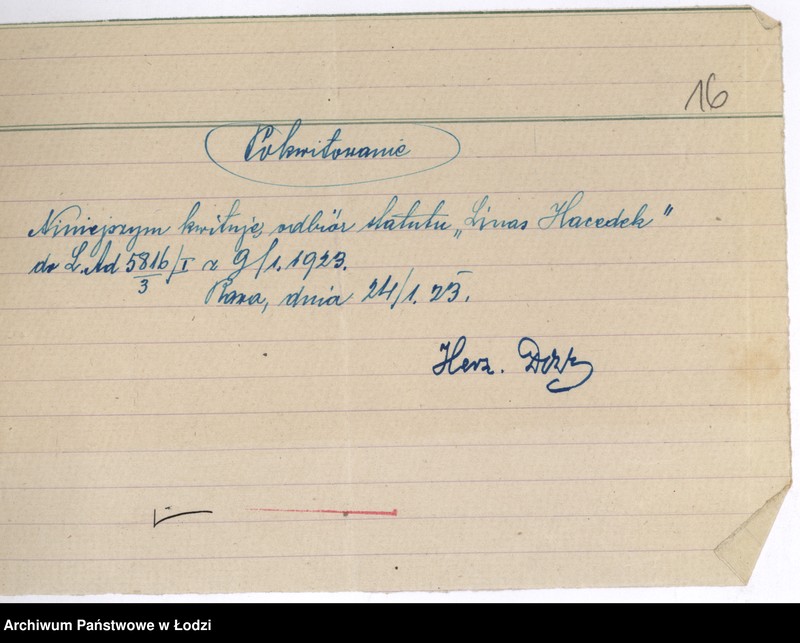 16
Pokwitowanie
Niniejszym kwituję odbiór statutu „Linas Hacedek”
do L. Ad 5816/I z 9/1. 1923.
3
Rawa, dnia 24/1. 23.
Herz.
Archiwum Państwowe w Łodzi